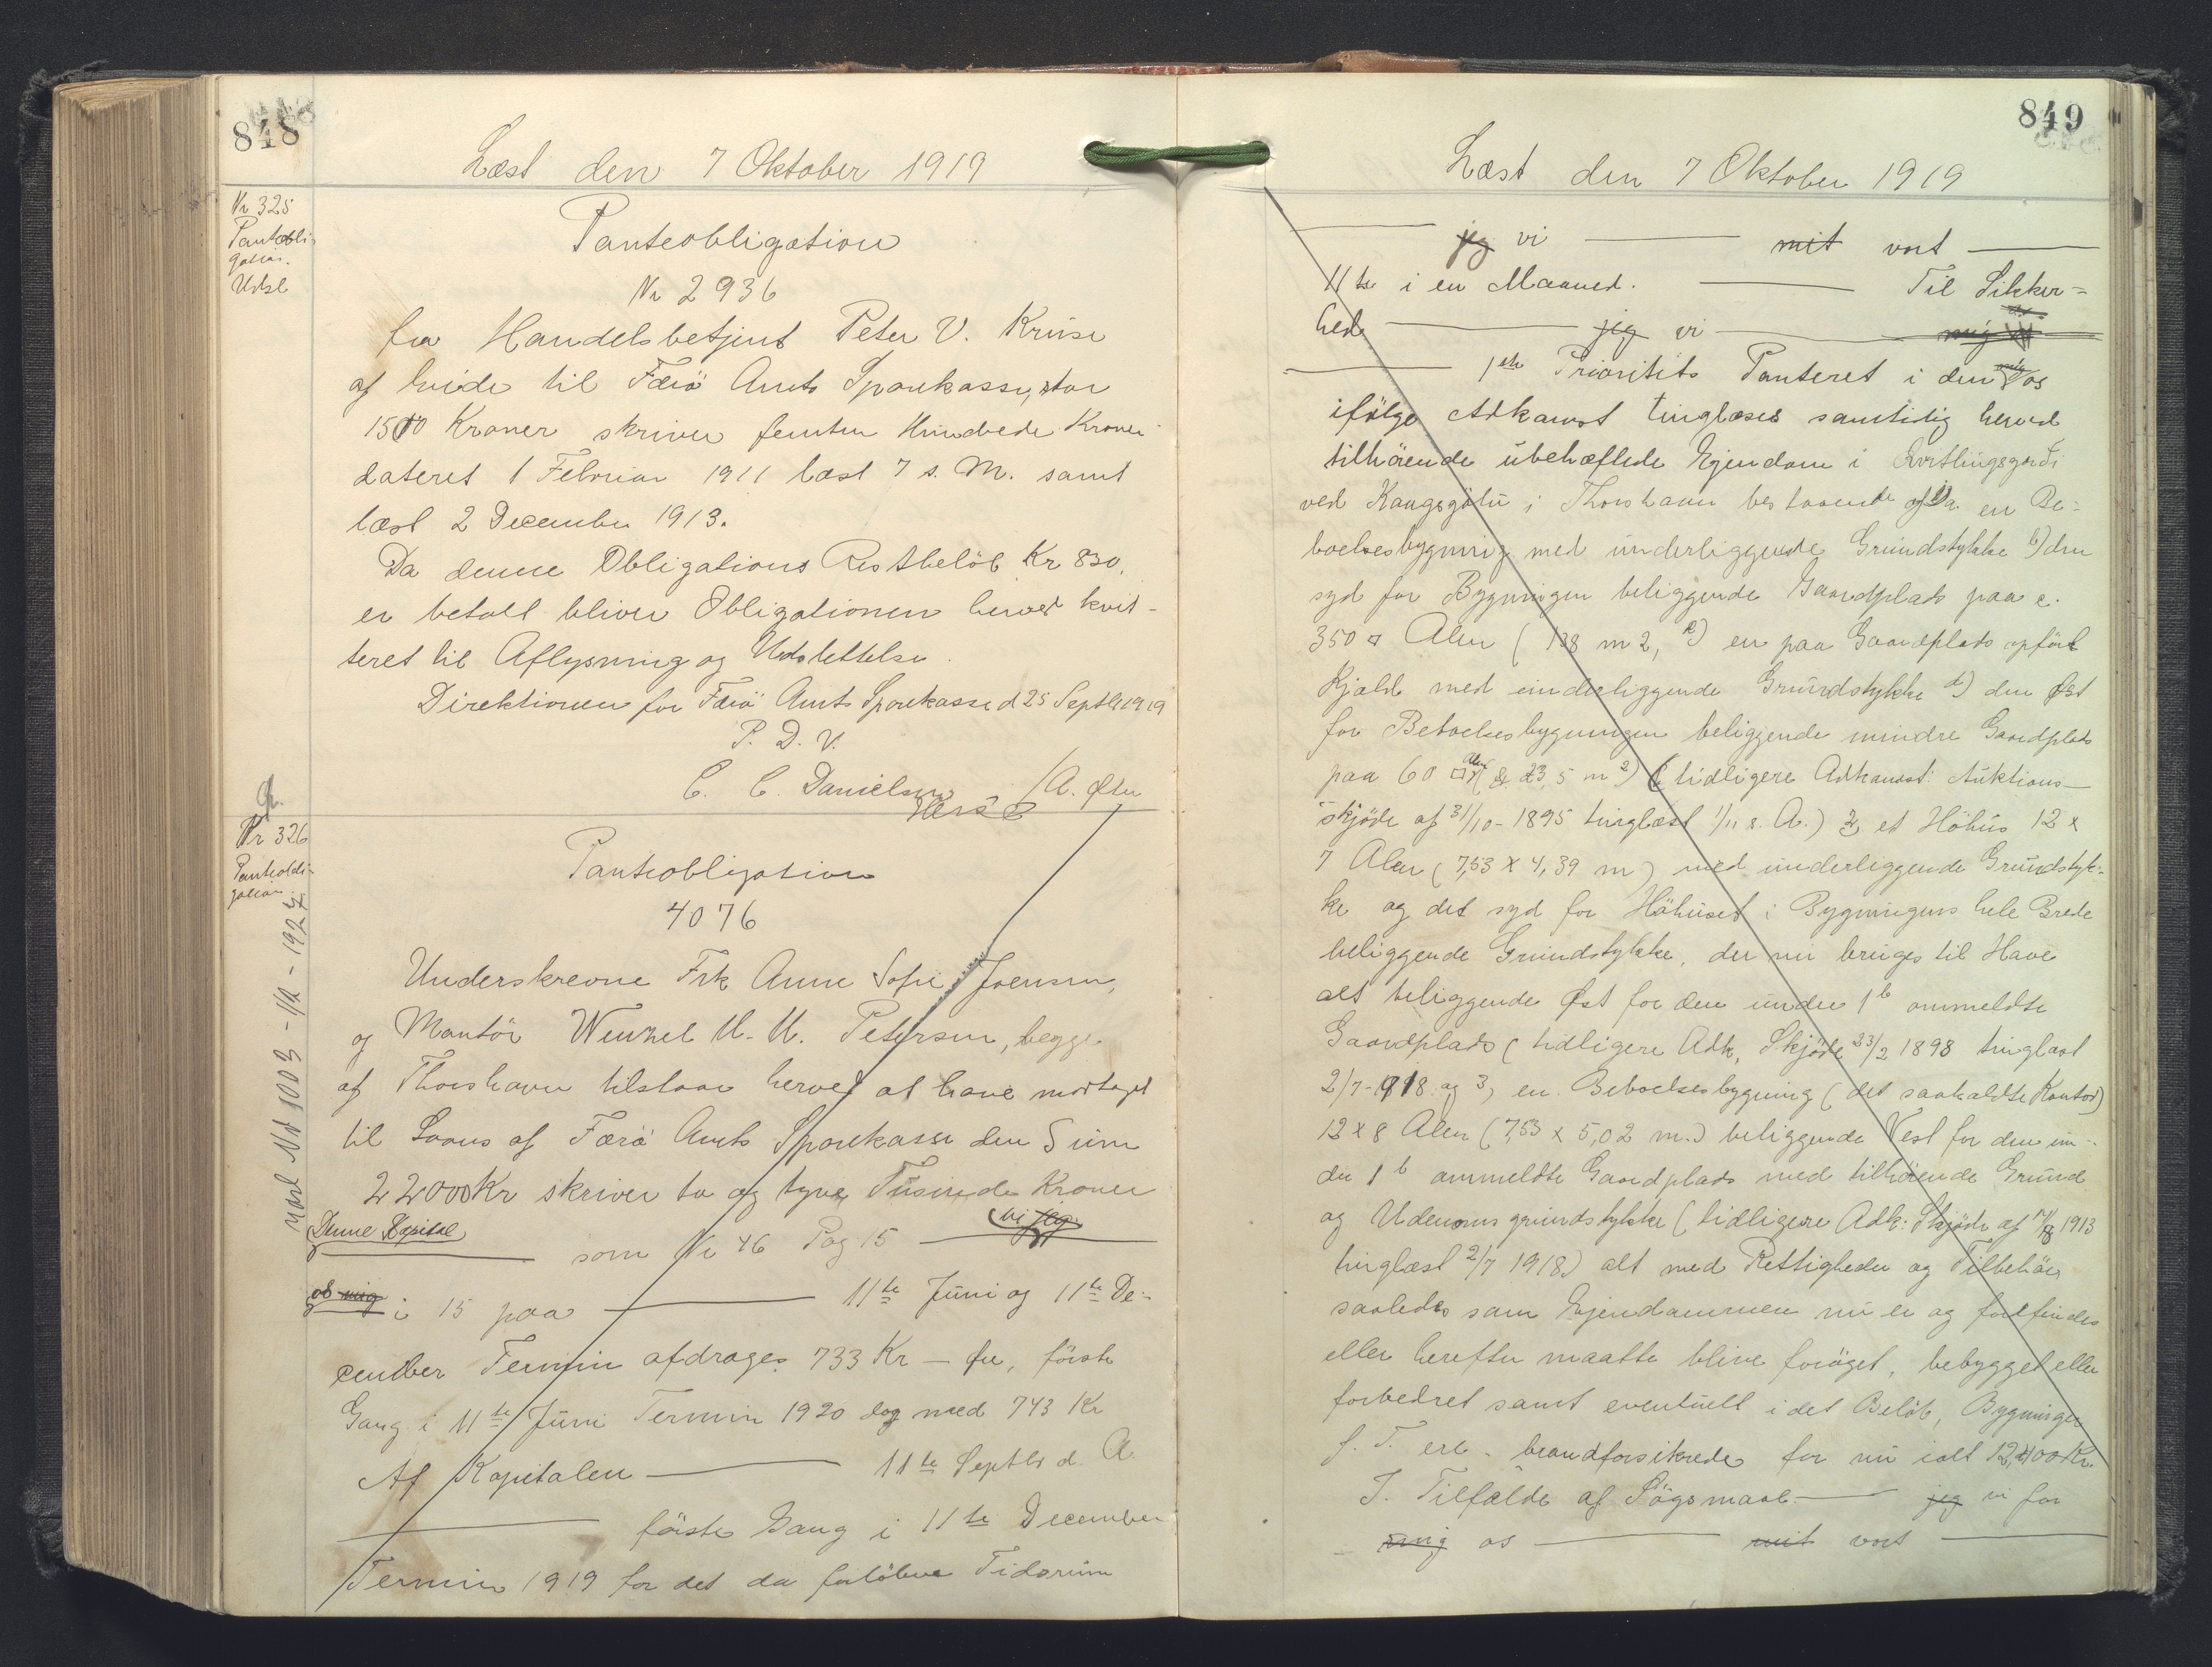 848
Læst den 7 Oktober 1919
Nr 325
Panteobli-
gation.
Udsl
Panteobligation
Nr 2936
fra Handelsbetjent Peter V. Kruse
af Eide til Færö Amts Sparekasse, stor
1500 Kroner skriver femten Hundrede Kroner
dateret 1 Februar 1911 læst 7 s. M. samt
læst 2 December 1913.
Da denne Obligations Restbelöb Kr 830.
er betalt bliver Obligationen herved kvit-
teret til Aflysning og Udslettelse.
Direktionen for Færö Amts Sparekasse d 25 Septbr 1919
P. D. V.
C. C. Danielsen /A.
Nr 326
Panteobli-
gation
Udsl Nr 1003 - 1/12 - 1925
Panteobligation
4076
Underskrevne Frk Anne Sofie Joensen,
og Montör Wenzel U. U. Petersen, begge
af Thorshavn tilstaar herved at have modtaget
til Laans af Færö Amts Sparekasse den Sum
22000 Kr skriver to og tyve Tusinde Kroner
Denne Kapital som Nr 46 Pag 15 vi jeg
os mig i 15 paa 11te Juni og 11te De-
cember Termin afdrages 733 Kr - öre, förste
Gang i 11te Juni Termin 1920 dog med 743 Kr
Af Kapitalen 11te Septbr d. A.
förste Gang i 11te December
Termin 1919 for det da forlöbne Tidsrum
849
Læst den 7 Oktober 1919
jeg vi mit vort
11te i en Maaned. Til Sikker-
hed jeg vi mig
1ste Prioritets Panteret i den os
ifölge Adkomst tinglæses samtidig herved
tilhörende ubehæftede Ejendom i
ved Kongagötu i Thorshavn bestaaende af 1/a en Be-
boelsesbygning med underliggende Grundstykke b) den
syd for Bygningen beliggende Gaardplads paa c.
350 □ Alen (138 m2, c) en paa Gaardplads opfört
Kjæld med underliggende Grundstykke d) den Øst
for Beboelsesbygningen beliggende mindre Gaardplads
paa 60 □ Alen 23,5 m2) (tidligere Adkomst: Auktions-
skjöde af 31/10-1895 tinglæst 1/11 s. A.) 2, et Höhus 12 x
7 Alen (7,53 x 4,39 m) med underliggende Grundstyk-
ke og det syd for Höhuset i Bygningens hele Brede
beliggende Grundstykke, der nu bruges til Have
alt beliggende Øst for den under 1b ommeldte
Gaardplads (tidligere Adk, Skjöde 23/2 1898 tinglæst
2/7-1918 og 3, en Beboelsesbygning (det saakaldte Kontor)
12 x 8 Alen (7,53 x 5,02 m.) beliggende Vest for den un-
der 1b ommeldte Gaardplads med tilhörende Grund
og Udenomsgrundstykke (tidligere Adk: Skjöde af 14/8 1913
tinglæst 2/7 1918) alt med Rettigheder og Tilbehör
saaledes som Ejendommen nu er og forefindes
eller herefter maatte blive foröget, bebygget eller
forbedret samt eventuelt i det Belöb, Bygninger
f. T. ere brandforsikrede for nu ialt 12,400 Kr.
I Tilfælde af Sögsmaal jeg vi for
mig os mit vort